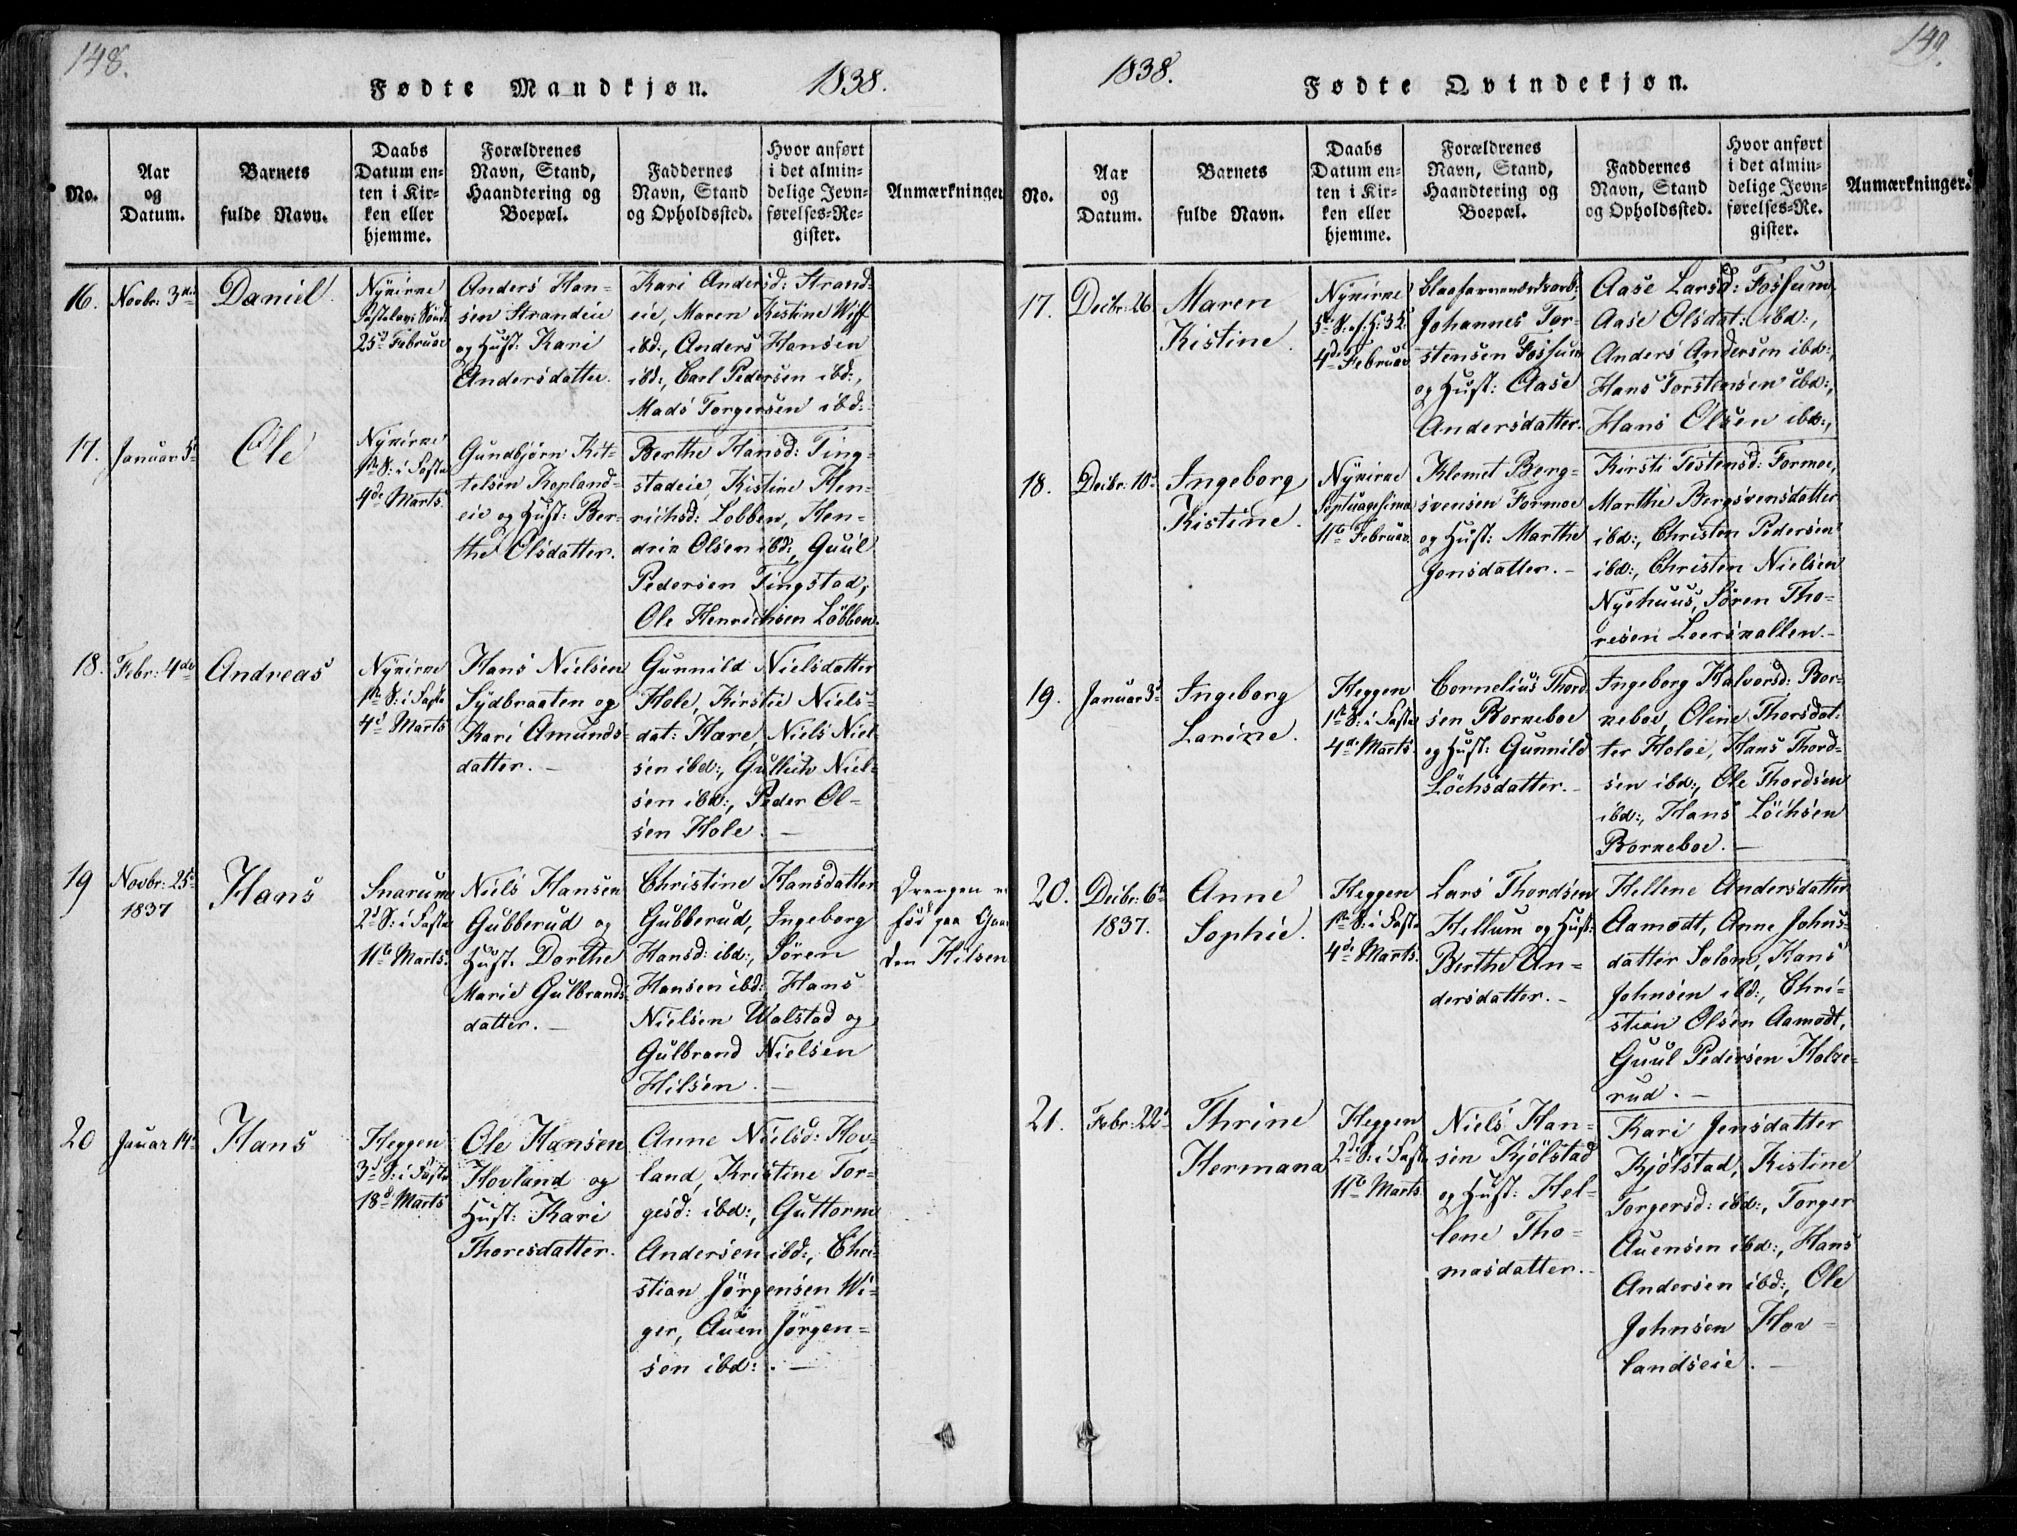 148.
Fødte Mandkjøn.
1838.
No.
Aar
og
Datum.
Barnets
fulde Navn.
Daabs
Datum en-
ten i Kir-
ken eller
hjemme.
Forældrenes
Navn, Stand,
Haandtering og
Boepæl.
Faddernes
Navn, Stand
og Opholdssted.
Hvor anført
i det almin-
delige Jevn-
førelses-Re-
gister.
Anmærkninger
16.
Novbr: 3die
Daniel.
Nykirne
Fastelavns Sønd:
25d Februar
Anders Han-
sen Strandeie
og Hust: Kari
Andersdatter.
Kari Andersd: Strand-
eie, Maren Kistine Wiff
ibd:, Anders Hansen
ibd:, Carl Pedersen ibd:,
Mads Torgersen ibd:.
17.
Januar 5t
Ole
Nykirne
1ste S: i Faste
4de Marts.
Gundbjørn Kit-
telsen Kopland-
eie og Hust: Ber-
the Olsdatter.
Berthe Hansd: Ting-
stadeie, Kistine Hen-
richsd: Lobben, Hen-
drik Olsen ibd:, Guul
Pedersen Tingstad,
Ole Henrichsen Løbben.
18.
Febr: 4de
Andreas
Nykirne
1ste S: i Faste
4d Marts
Hans Nielsen
Sydbraaten og
Kari Amunds-
datter. —
Gunnild Nielsdatter
Hole, Kirstie Niels-
dat: Hære, Niels Niel-
sen ibd:, Gullich Niel-
sen ibd:, Peder Ol-
sen Hole. —
19
Novbr: 25d
1837
Hans
Snarum
2d S: i Faste
11te Marts.
Niels Hansen
Gubberud og
Hust. Dorthe
Marie Gulbrands-
datter. —
Christine Hansdatter
Gubberud, Ingeborg
Hansd: ibd:, Søren
Hansen ibd: Hans
Nielsen Walstad og
Gulbrand Nielsen
Hilsen. —
Drengen er
fød paa Gaar
den Hilsen
20
Jauar 14d
Hans
Heggen
3d S: i Faste
18d Marts
Ole Hansen
Hovland og
Hust: Kari
Thoresdatter.
Anne Nielsd: Hov-
land, Kristine Tor-
gesd: ibd:, Guttorm
Andersen ibd:, Chri-
stian Jørgensen Wi-
ger, Auen Jørgen-
sen ibd:. —
149.
1838.
Fødte Qvindekjøn.
No.
Aar
og
Datum.
Barnets
fulde Navn.
Daabs
Datum en-
ten i Kir-
ken eller
hjemme.
Forældrenes
Navn, Stand,
Haandtering og
Boepæl.
Faddernes
Navn, Stand
og Opholdssted.
Hvor anført
i det almin-
delige Jevn-
førelses-Re.
gister.
Anmærkninger.
17.
Decbr: 26
Maren
Kistine.
Nykirne
4de Februar
Johannes Tor-
stensen Fossum
og Hust: Aase
Andersdatter.
Aase Larsd: Fossum.
Aase Olsdat: ibd:,
Anders Andersen ibd:,
Hans Torstensen ibd:,
Hans Olsen ibd:,
18.
Decbr: 10d
Ingeborg
Kistine.
Nykirne
Septuagesima
11te Februar.
Klemet Berg-
svensen Formoe
og Hust: Marthe
Jonsdatter. —
Kirsti Tostensd: Formoe,
Marthe Bergsvensdatter
ibd:, Christen Pedersen
ibd:, Christen Nielsen
Nyehuus, Søren Tho-
resen Leersvallen. —
19.
Januar 3d
Ingeborg
Larine.
Heggen
1ste S: i Faste
4de Marts
Cornelius Thord-
sen Borneboe
og Hust: Gunnild
Løchsdatter. —
Ingeborg Halvorsd: Bor-
neboe, Oline Thorsdat-
ter Holoe, Hans Thord-
sen ibd:, Ole Thordsen
ibd:, Hans Løchsen
Borneboe. —
20.
Decbr: 6te
1837.
Anne
Sophie.
Heggen
1ste S: i Faste
4d Marts.
Lars Thordsen
Hellum og Hust:
Berthe An-
dersdatter. —
Hellene Andersdatter
Aamodt, Anne Johns-
datter Solom, Hans
Johnsen ibd:, Chri-
stian Olsen Aamodt,
Guul Pedersen Holze-
rud. —
21.
Febr: 22d
Thrine
Hermana
Heggen
2d S: i Faste
11te Marts
Niels Han-
sen Kjølstad
og Hust: Hel-
lene Tho-
masdatter. —
Kari Jensdatter
Kjølstad, Kistine
Torgersd: ibd:, Torger
Auensen ibd:, Hans
Andersen ibd:, Ole
Johnsen Hov-
landseie. —